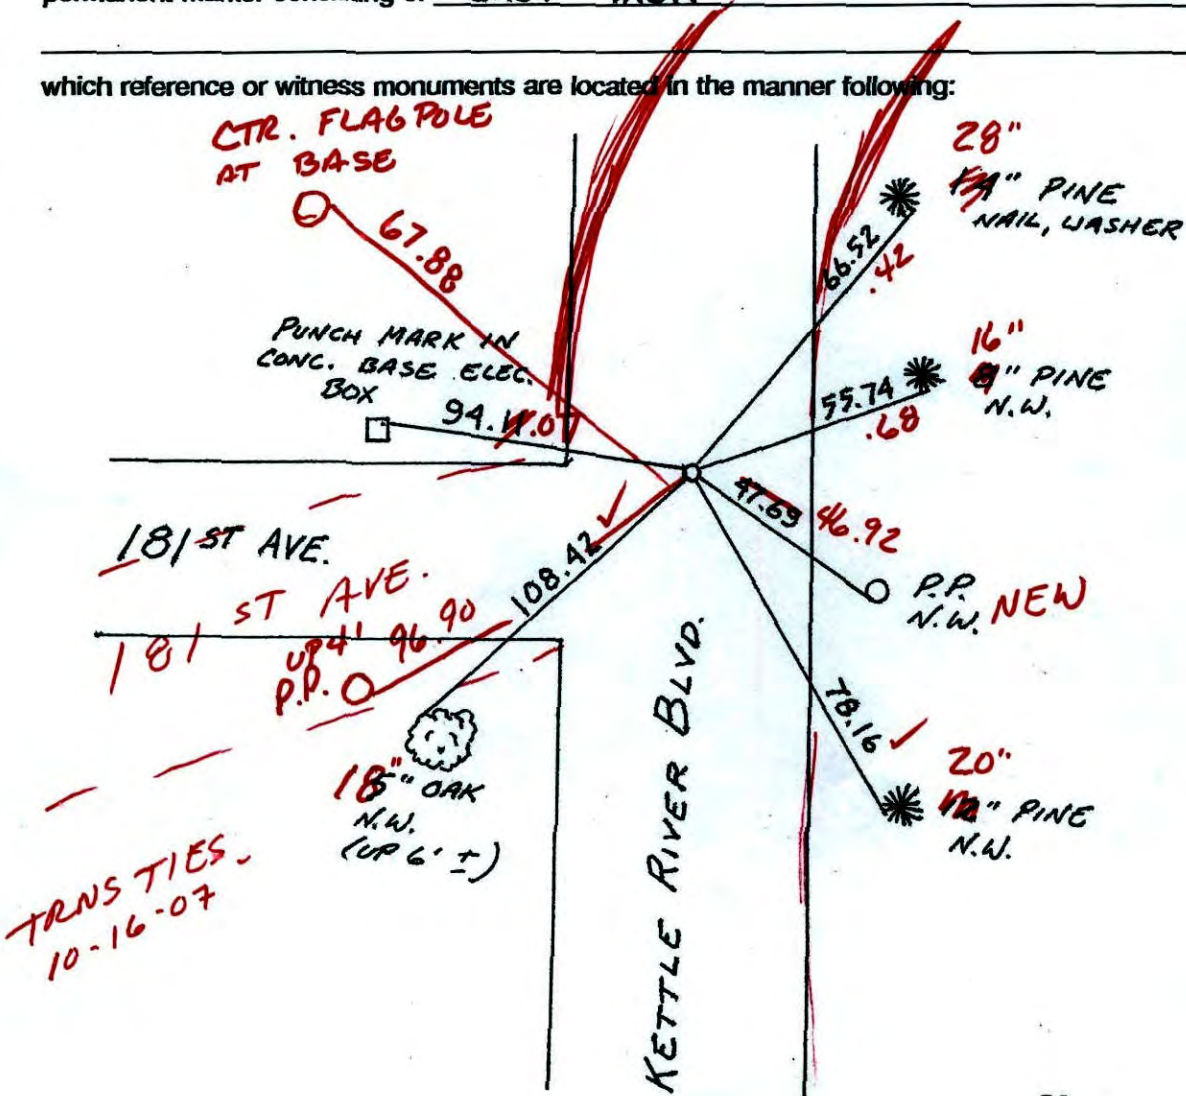 which reference or witness monuments are located in the manner following:
CTR. FLAGPOLE
AT BASE
67.88
28"
14" PINE
NAIL, WASHER
66.52
.42
PUNCH MARK IN
CONC. BASE ELEC.
BOX
94.11
16"
PINE
N.W.
55.74
.68
47.69
46.92
P.P.
N.W. NEW
181 ST AVE.
181 ST AVE.
108.42 ✓
UP 4' 96.90
P.P.
78.16 ✓
20"
12" PINE
N.W.
18"
5" OAK
N.W.
(UP 6' ±)
KETTLE RIVER BLVD.
TRNS TIES.
10-16-07